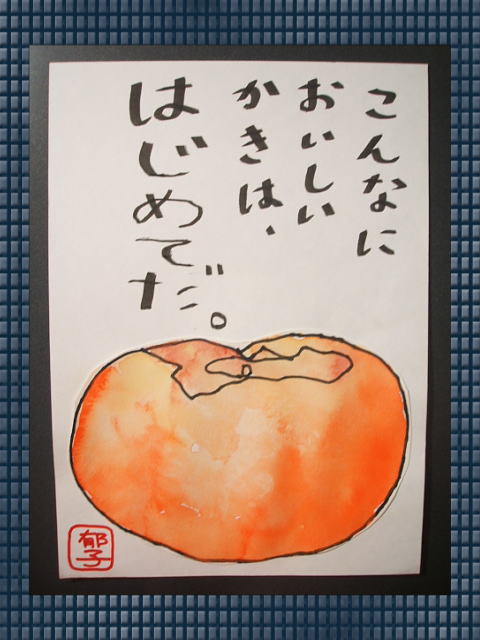 こんなに
おいしい
かきは、
はじめてだ。
郁子